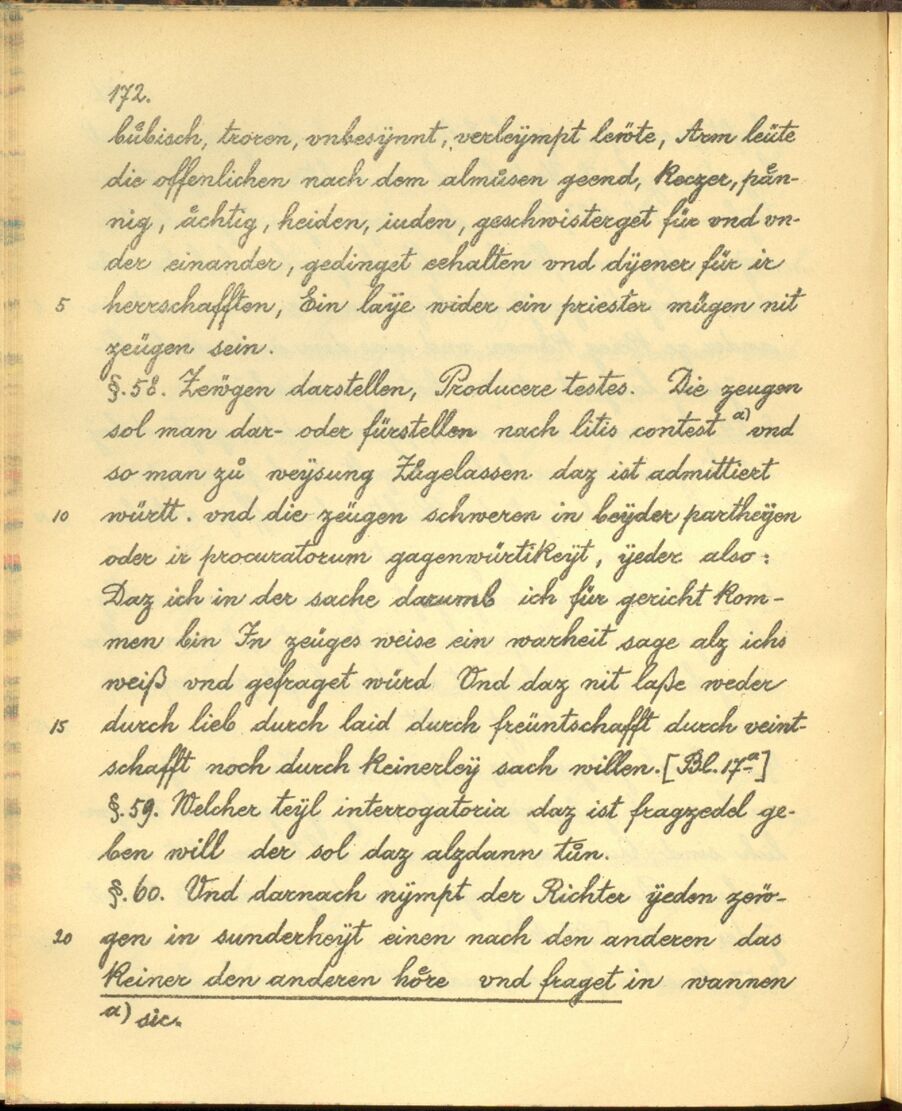 172.
bůbisch, troren, vnbesÿnnt, verleÿmpt lewte, Arm leüte
die offenlichen nach dem almůsen geend, Keczer, pån-
nig, åchtig, heiden, iuden, geschwisterget für vnd vn-
der einander, gedinget eehalten vnd dÿener für ir
5 herrschafften, Ein laÿe wider ein priester mügen nit
zeügen sein.
§.58. Zewgen darstellen, Producere testes. Die zeugen
sol man dar- oder fürstellen nach litis contest a) vnd
so man zů weÿsung Zůgelassen daz ist admittiert
10 württ. vnd die zeügen schweren in beÿder partheÿen
oder ir procuratorum gagenwürtikeÿt, ÿeder also:
Daz ich in der sache darumb ich für gericht kom-
men bin In zeüges weise ein warheit sage alz ichs
weiß vnd gefraget würd Vnd daz nit laße weder
15 durch lieb durch laid durch freüntschafft durch veint-
schafft noch durch keinerleÿ sach willen. [Bl. 17a]
§.59. Welcher teÿl interrogatoria daz ist fragzedel ge-
ben will der sol daz alzdann tůn.
§.60. Vnd darnach nÿmpt der Richter ÿeden zew-
20 gen in sunderheÿt einen nach den anderen das
keiner den anderen hoͤre vnd fraget in wannen
a) sic.